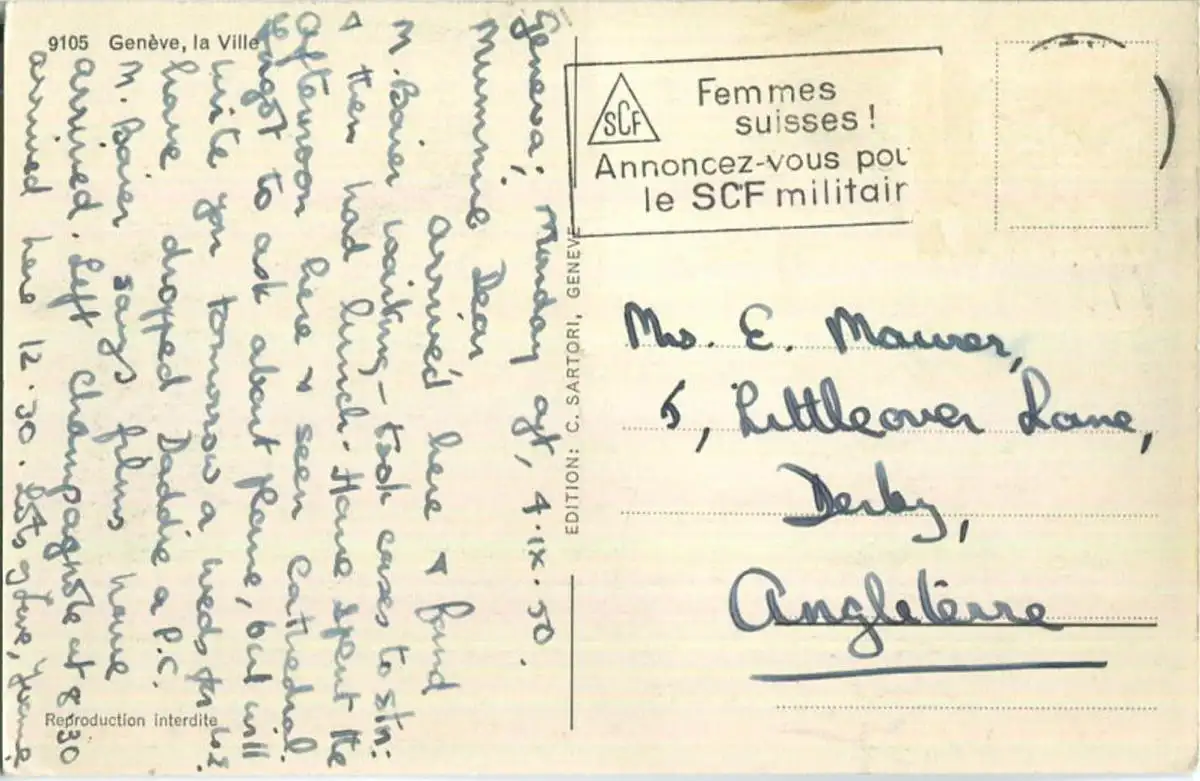 9105 Genève, la Ville
Geneva; Monday aft, 4.IX.50.
Mummie Dear
arrived here & found
M. Baier waiting - took cases to stn:
& then had lunch. Have spent the
afternoon here & seen cathedral.
Forgot to ask about plane, but will
write you tomorrow a weds for
have dropped Daddie a P.C.
M. Baier says films have
arrived. Left Champagnole at 8.30
arrived here 12.30. Lots of love, Yvonne.
Reproduction interdite
EDITION: C. SARTORI, GENEVE
SCF
Femmes
suisses!
Annoncez-vous pou
le SCF militair
Mrs. E. Maurer,
5, Littleover Lane,
Derby,
Angleterre